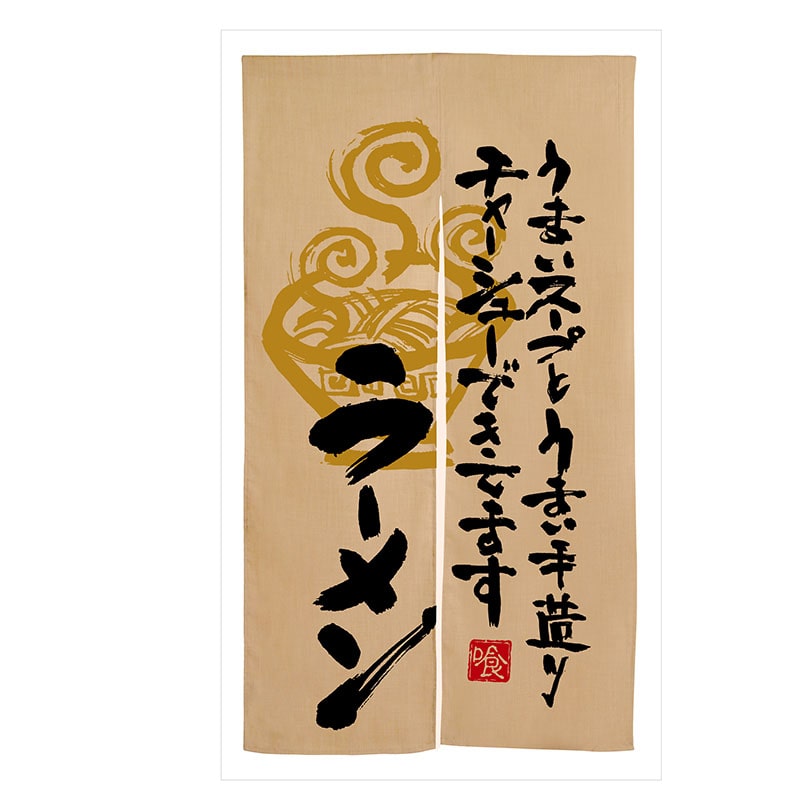 うまいスープとうまい手造り
チャーシューできてます
喰
ラーメン